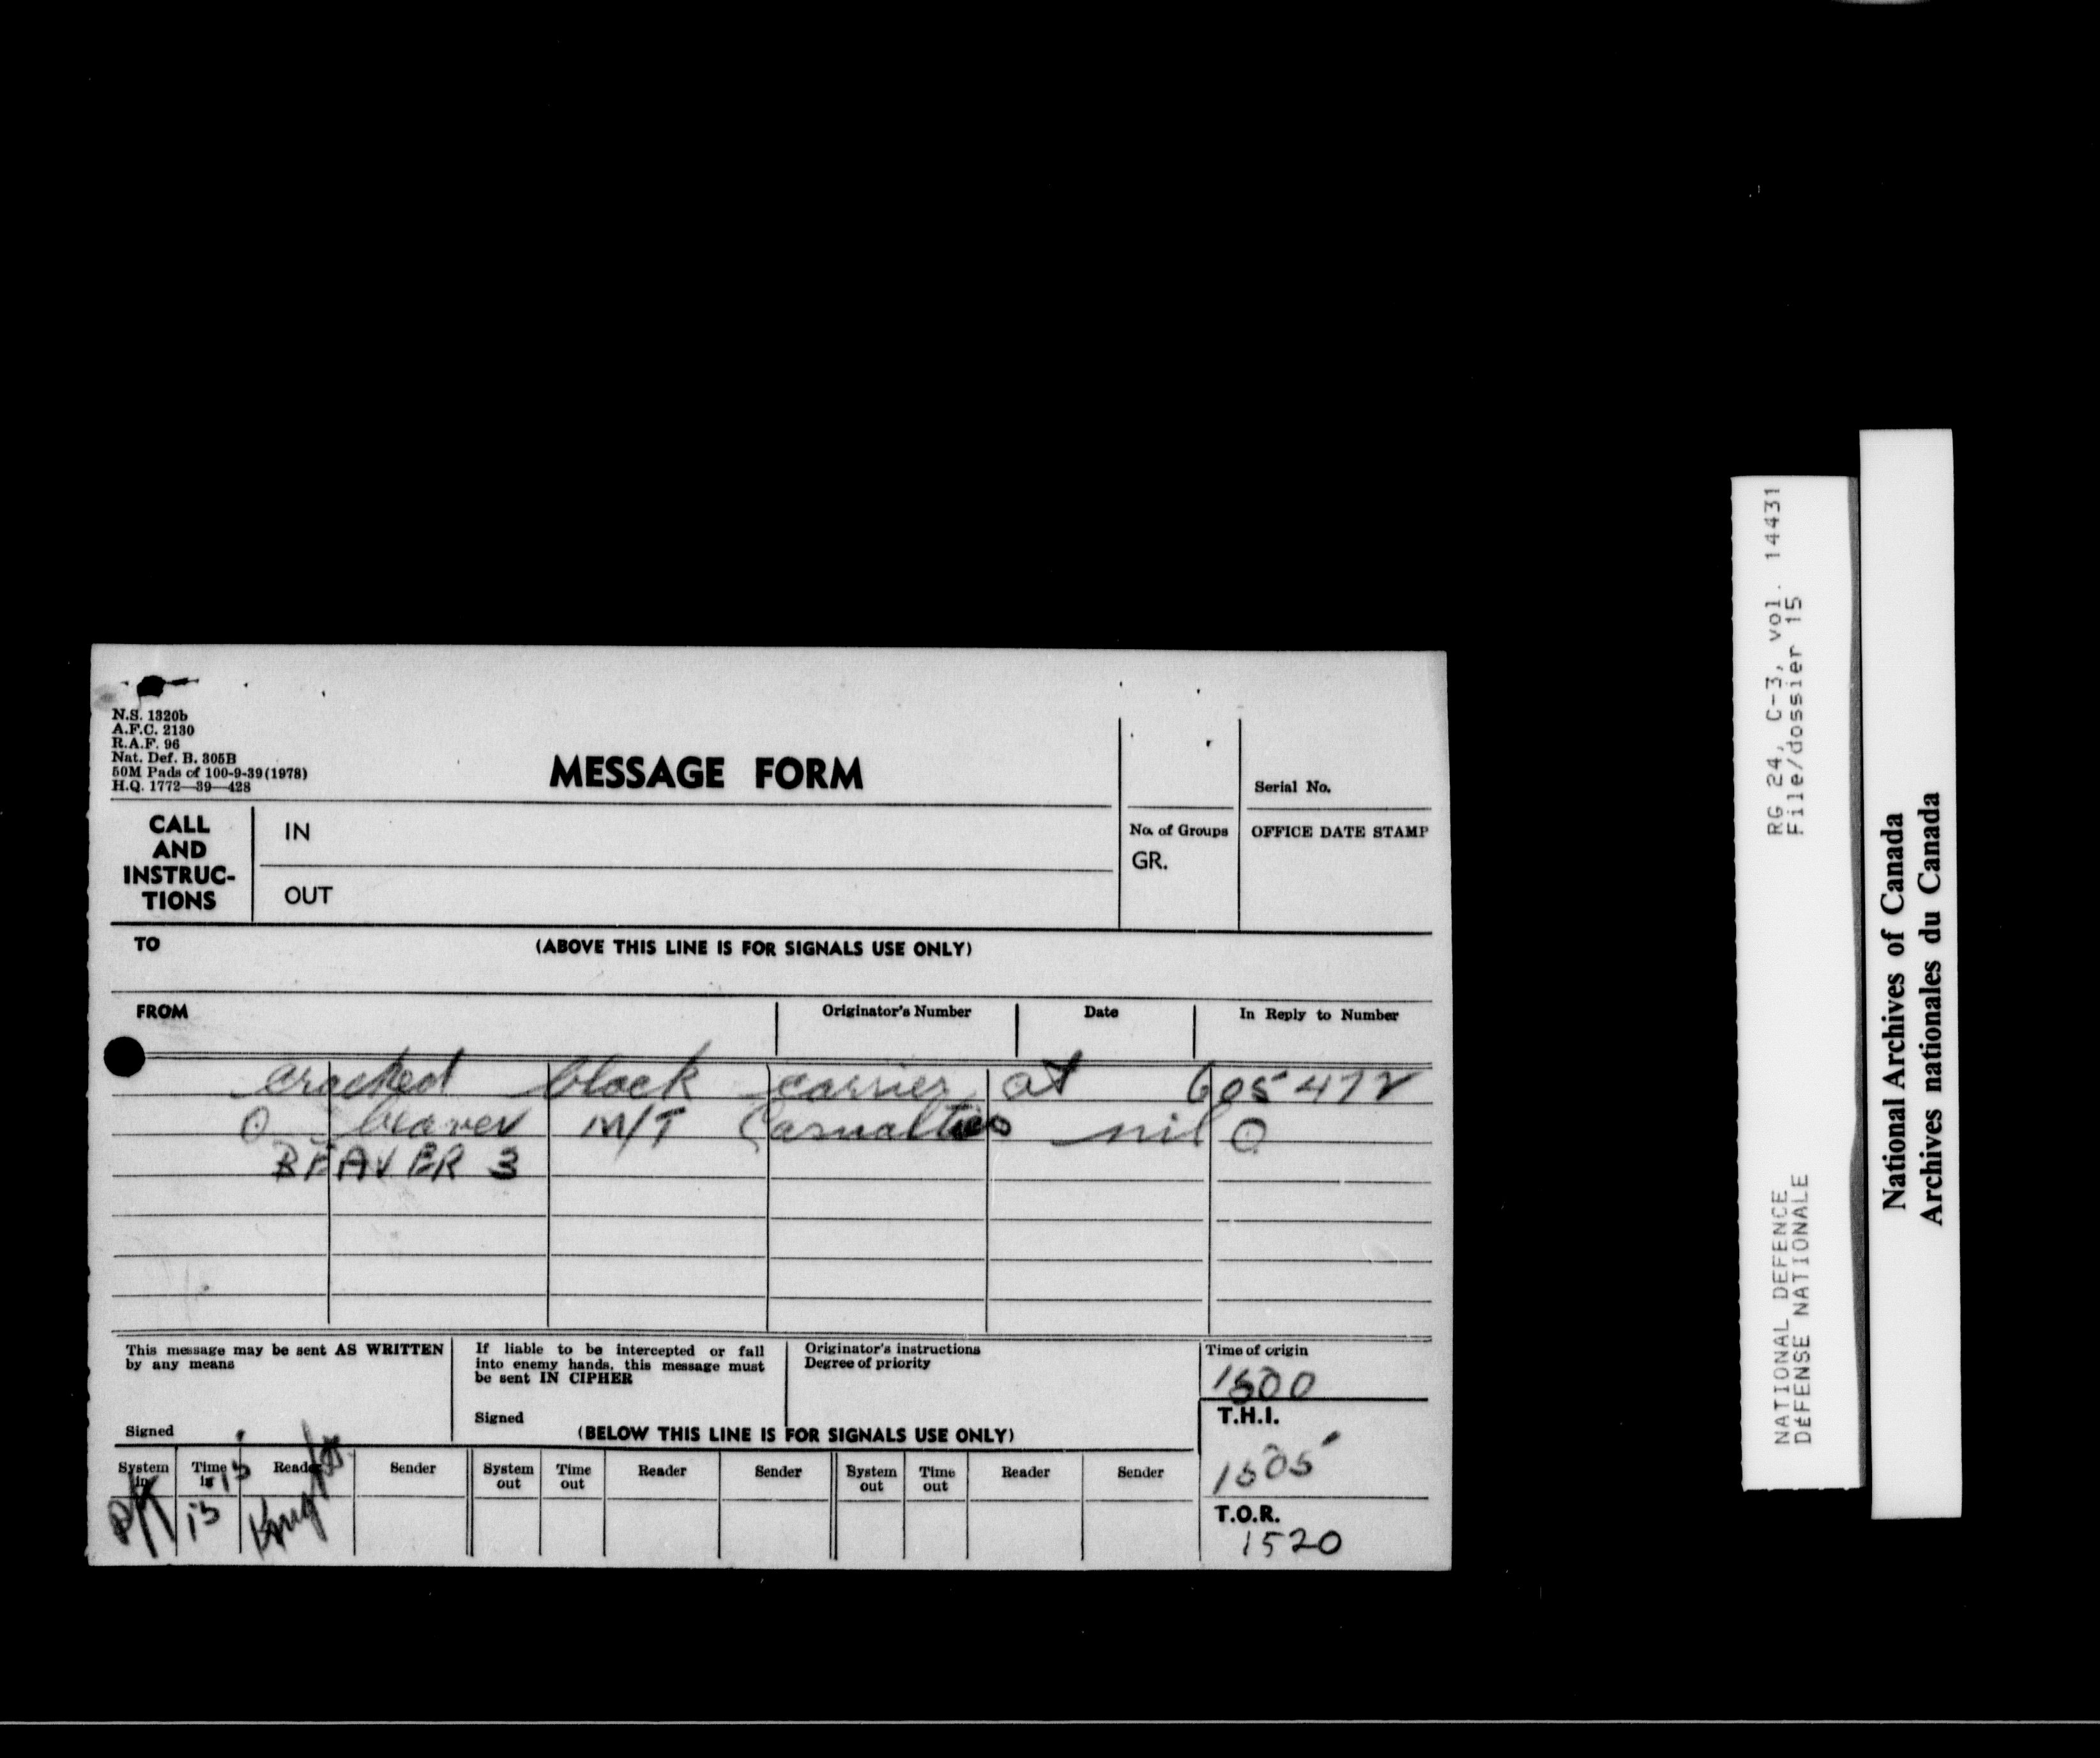 N.S. 1320b
A.F.C. 2130
R.A.F. 96
Nat. Def. B. 305B
50M Pads of 100-9-39(1978)
H.Q. 1772—39—428
MESSAGE FORM
Serial No.
CALL AND INSTRUC-TIONS
IN
OUT
No. of Groups
GR.
OFFICE DATE STAMP
TO
(ABOVE THIS LINE IS FOR SIGNALS USE ONLY)
FROM
Originator's Number
Date
In Reply to Number
cracked block carrier at 605472
O beaver M/T Casualties nil O
BEAVER 3
This message may be sent AS WRITTEN
by any means
Signed
If liable to be intercepted or fall
into enemy hands, this message must
be sent IN CIPHER
Signed
Originator's instructions
Degree of priority
(BELOW THIS LINE IS FOR SIGNALS USE ONLY)
Time of origin
1500
T.H.I.
1505
T.O.R.
1520
System in
Time in
Reader
Sender
System out
Time out
Reader
Sender
System out
Time out
Reader
Sender
RG 24, C-3, vol. 14431
File/dossier 15
NATIONAL DEFENCE
DÉFENSE NATIONALE
National Archives of Canada
Archives nationales du Canada